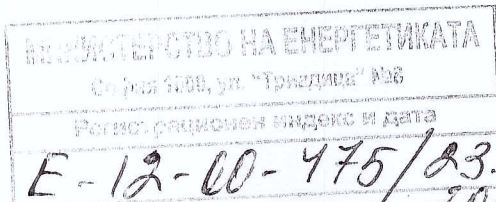 МИНИСТЕРСТВО НА ЕНЕРГЕТИКАТА
София 1000, ул. "Триадица" №8
Регистрационен индекс и дата
Е-12-00-475/23.